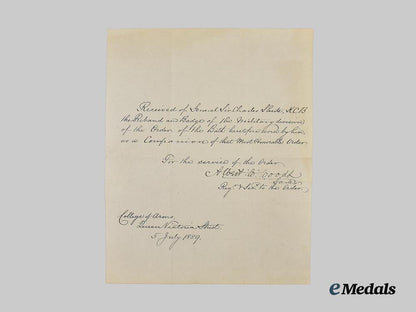 Received of General Sir Charles Shute, K.C.B.
the Riband and Badge of the Military division
of the Order of the Bath heretofore worn by him
as a Companion of that Most Honorable Order.
For the service of the Order
Albert W. Woods
Garter
Regr & Secy to the Order
College of Arms,
Queen Victoria Street.
5 July 1889.
eMedals